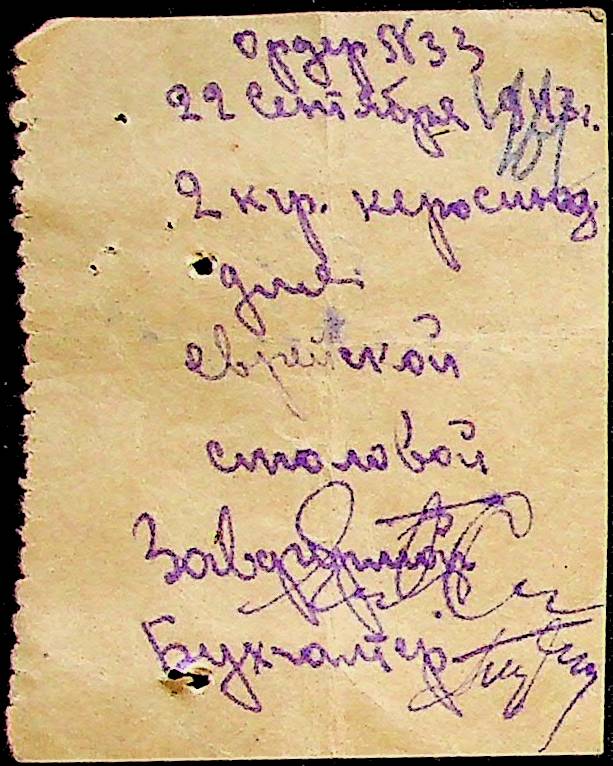 Ордер №33
22 Сентября 194 г.
2 кгр. керосина
для
еврейской
столовой
Бухгалтер